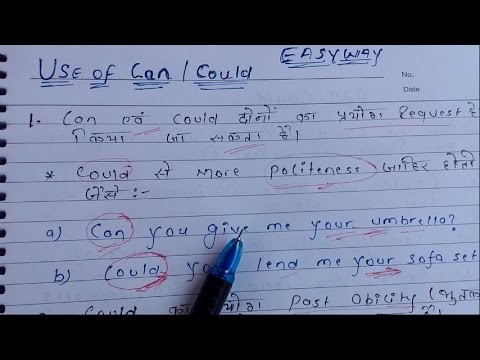 EASY WAY
USE OF Can / Could
No.
Date
1. Can एवं Could दोनों का प्रयोग Request हे
किया जा सकता है।
* Could से More Politeness जाहिर होती
जैसे :-
a) Can you give me your umbrella?
b) Could you lend me your sofa set
Could का प्रयोग Past Obility (भूतका